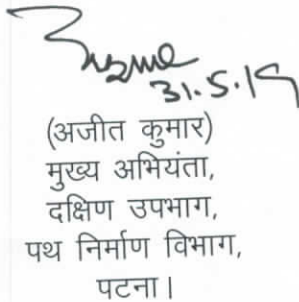 31.5.19
(अजीत कुमार)
मुख्य अभियंता,
दक्षिण उपभाग,
पथ निर्माण विभाग,
पटना।